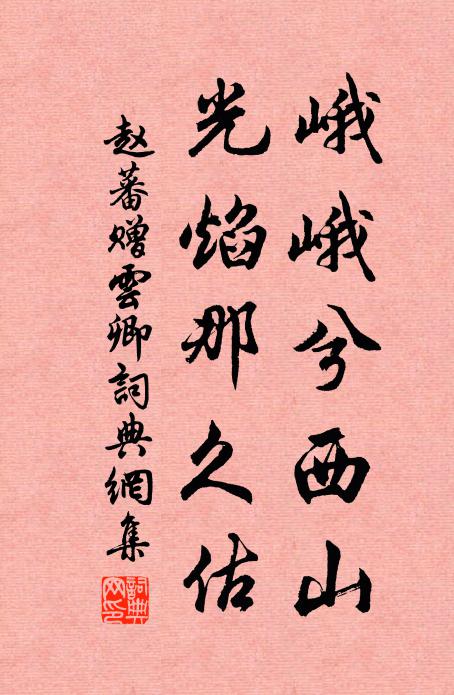 峨峨兮西山
光焰那久估
赵蕃赠雲卿詞典網集
詞典网印